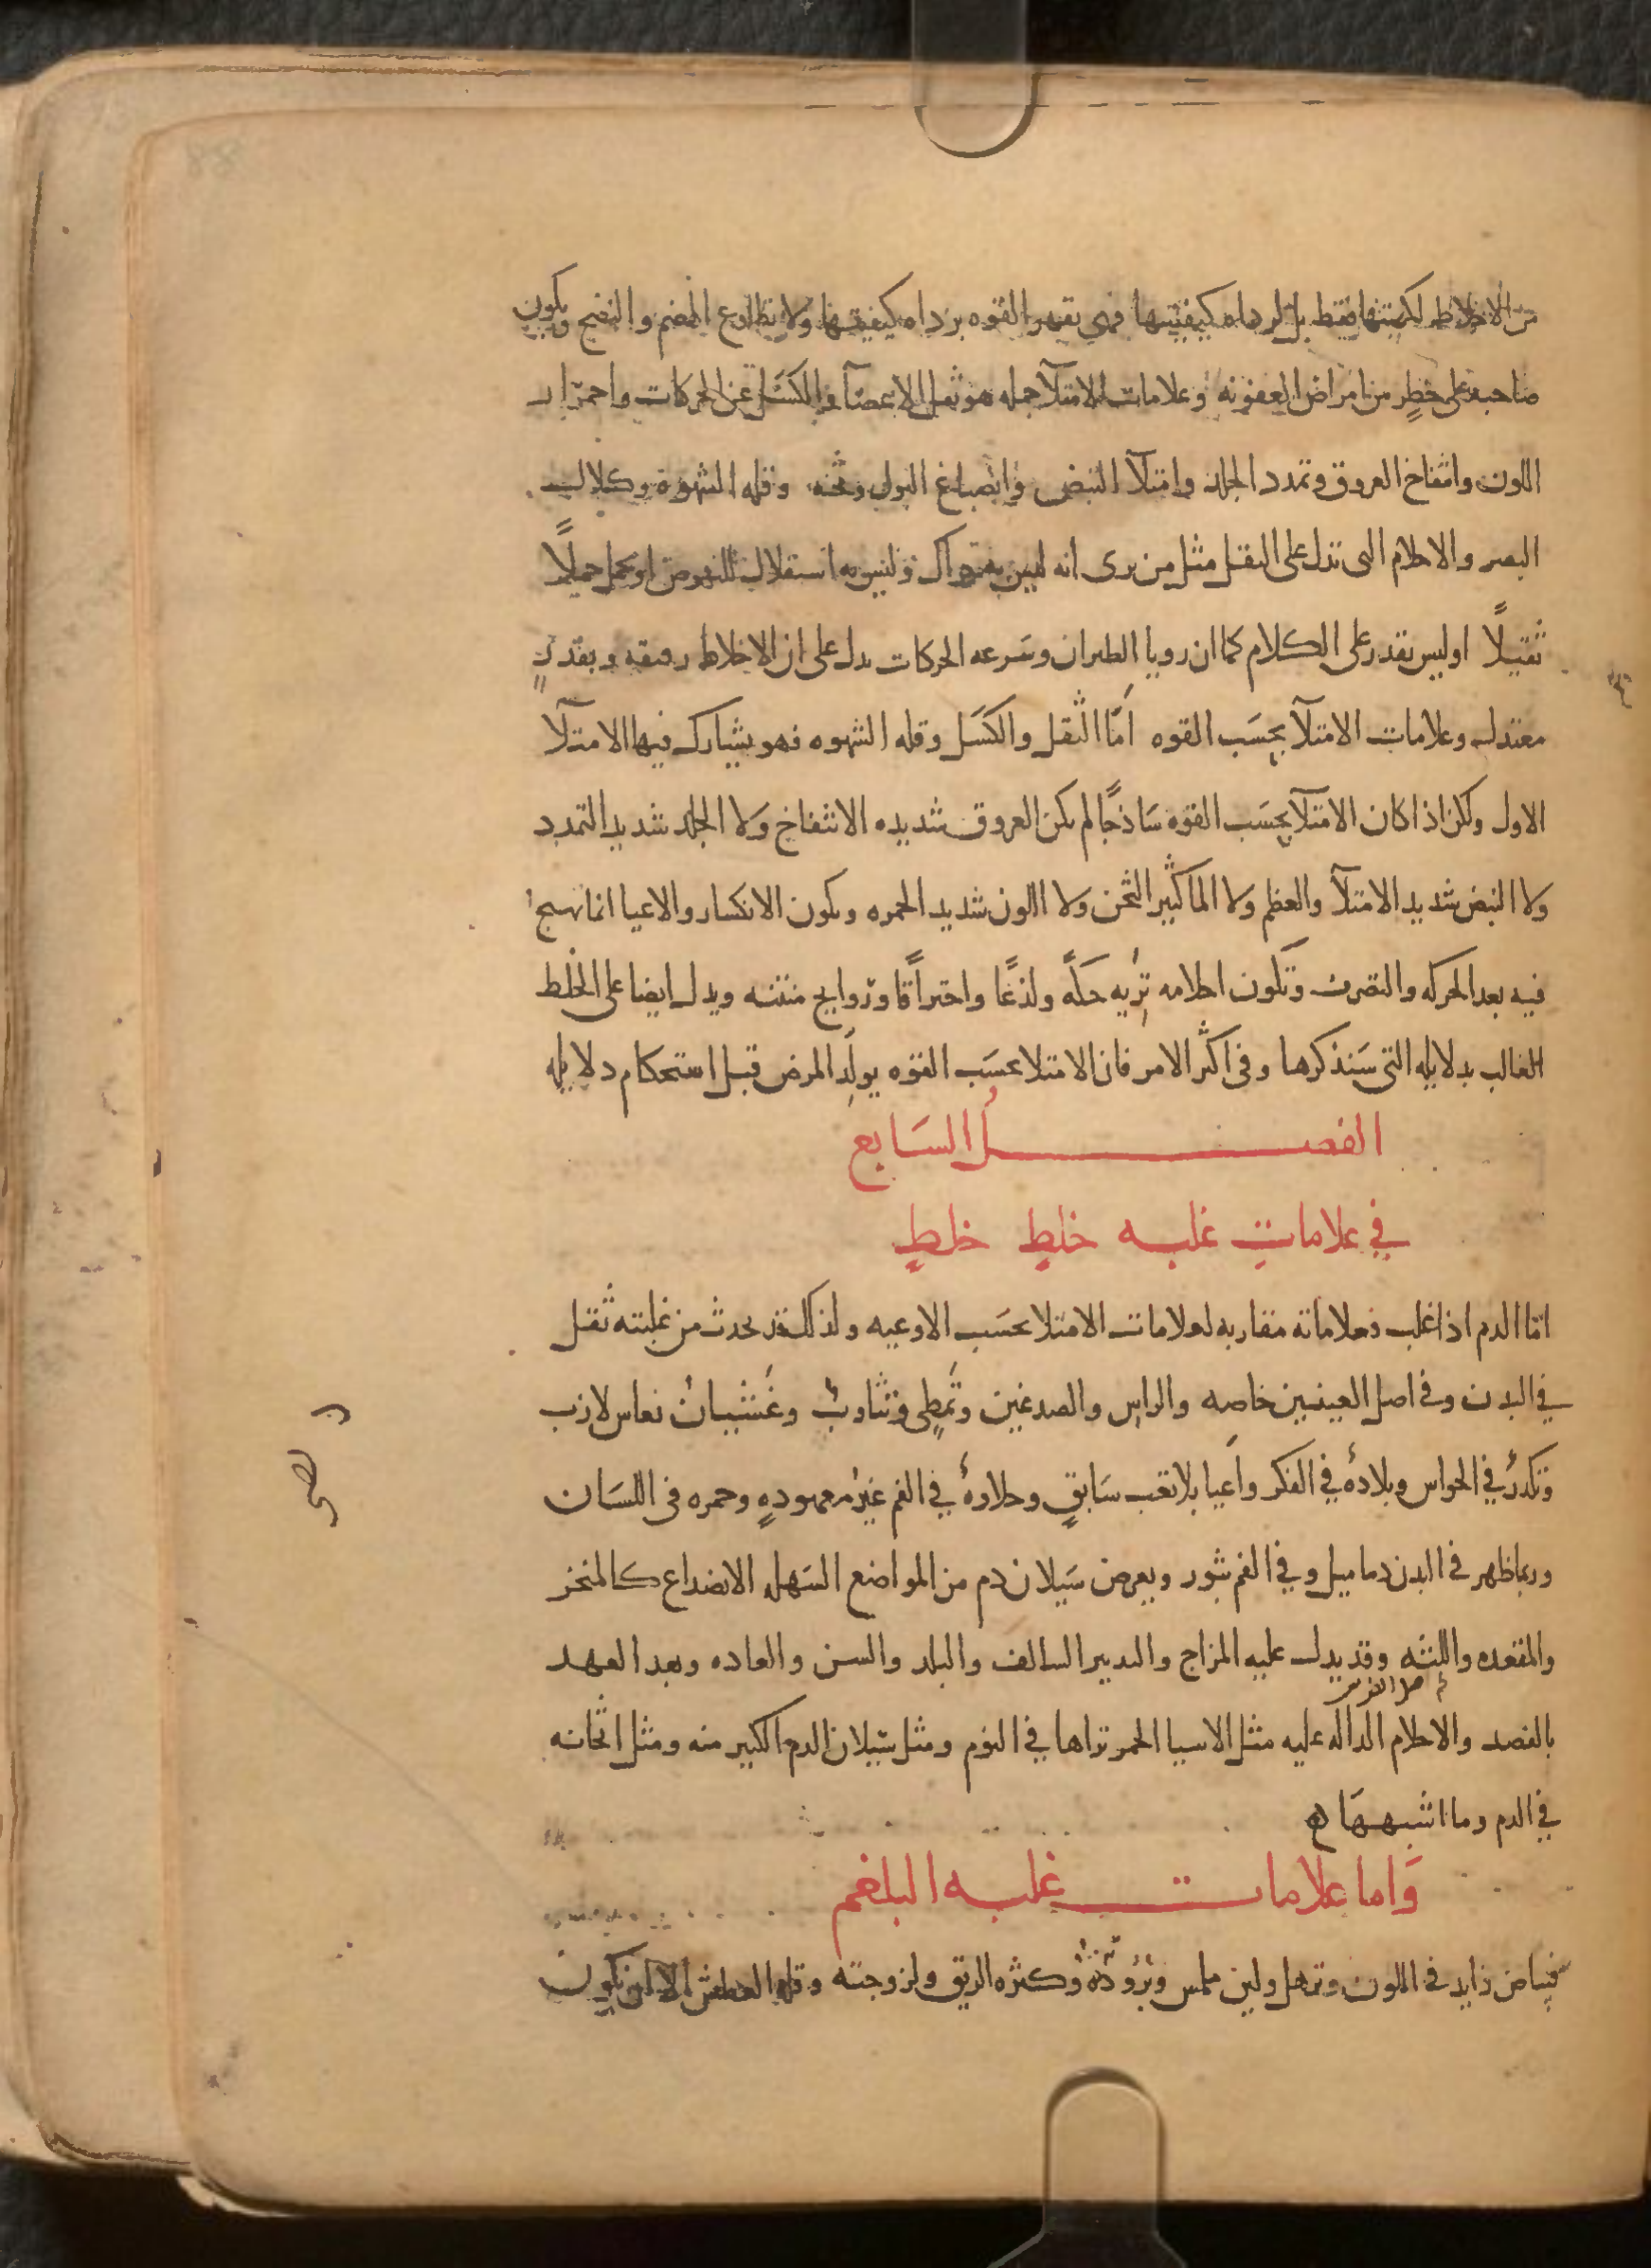 من الاخلاط لكميتها فقط بل لرداه كيفيتها فهى تقهر القوه برداه كيفيتها ولا تطاوع الهضم والنضج ويكون
صاحبه على خطر من امراض العفونه وعلامات الامتلآ جمله هو ثقل الاعضآ والكسَل عن الحركات واحمرار
اللون وانتفاخ العروق وتمدد الجلد وامتلآ النبض وانصباغ البول وثخنه وقله الشهوة وكلال
البصر والاحلام التى تدل على الثقل مثل من يرى انه ليس به حراك وليس به استقلال للنهوض او يحمل حملاً
ثقيلاً او ليس يقدر على الكلام كما ان رويا الطيران وسَرعه الحركات يدل على ان الاخلاط رقيقه وبقدرٍ
معتدل وعلامات الامتلآ بحسَب القوه امّا الثقل والكسَل وقله الشهوه فهو يشارك فيها الامتلآ
الاول ولكن اذا كان الامتلآ بحسَب القوه سَاذجًا لم يكن العروق شديده الانتفاخ ولا الجلد شديد التمدد
ولا النبض شديد الامتلآ والعظم ولا الما كثير الثخن ولا اللون شديد الحمره ويكون الانكسار والاعيا انما يهيج
فيه بعد الحركه والتصرف وتكون احلامه تُريه حكةً ولذعًا واحتراقًا وروايح منتنه ويدل ايضا على الخلط
الغالب بدلايله التى سَنذكرها وفى اكثر الامر فان الامتلا بحسَب القوه يولد المرض قبل استحكام دلايله
الفصل السَابع
في علاماتِ غلبه خلطٍ خلطٍ
امّا الدم اذا غلب فعلاماته مقاربه لعلامات الامتلا بحسَب الاوعيه ولذلك قد يحدث من غلبته ثقل
في البدن وفى اصل العينين خاصه والراس والصدغين وتَمطٍى وتثاوبٌ وغَشيان نعاس لازب
وتكدرٌ في الحواس وبلادةٌ في الفكر واَعيا بلا تعب سَابقٍ وحلاوةٌ في الفم غيرُ معهودهٍ وحمره فى اللسَان
وربما ظهر فى البدن دماميل وفي الفم بثور ويعرض سَيلان دم من المواضع السَهله الانصداع كالمنخر
والمقعده واللثه وقد يدل عليه المزاج والتدبير السالف والبلد والسن والعاده وبعد العهد
بالفصد والاحلام الداله عليه مثل الاسيا الحمر تراها في النوم ومثل سَيلان الدم الكثير منه ومثل اثخانه
في الدم وما اشبههَا
وَاما علامات غلبه البلغم
فبياض زايد فى اللون وترهل ولين ملمس وبرُودةٌ وكثره الريق ولزوجته وقله العطش الا ان يكون